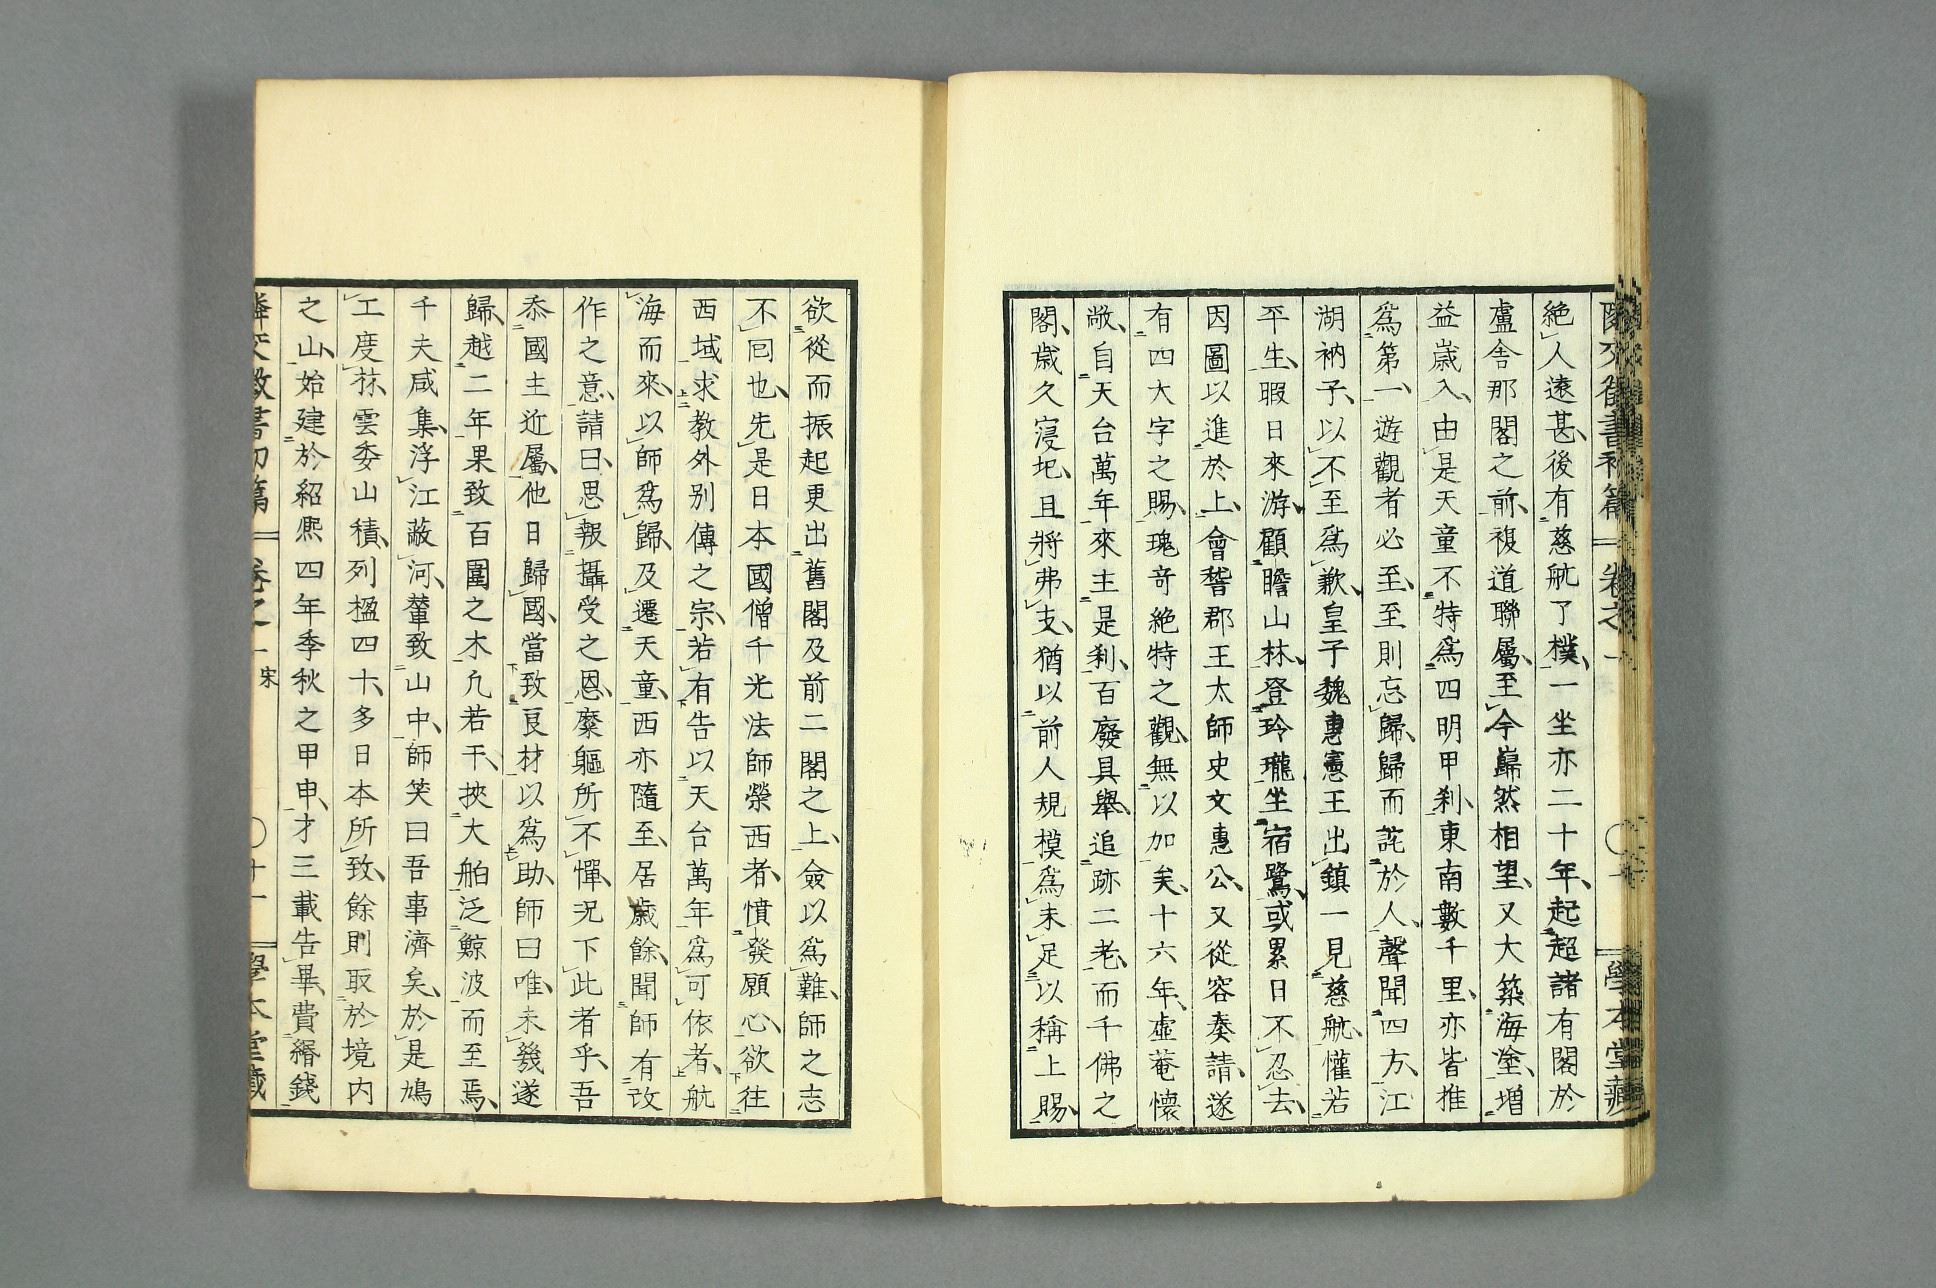 絶人遠甚後有慈航了樸一坐亦二十年起超諸有閣於
盧舎那閣之前複道聯屬至今巋然相望又大築海塗増
益嵗入由是天童不特爲四明甲刹東南數千里亦皆推
爲第一遊觀者必至至則忘歸歸而詫於人聲聞四方江
湖衲子以不至爲歉皇子魏惠憲王出鎮一見慈航懽若
平生暇日來游顧瞻山林登玲瓏坐宿鷺或累日不忍去
因圖以進於上會稽郡王太師史文惠公又從容奏請遂
有四大字之賜瑰竒絶特之觀無以加矣十六年虛菴懷
敞自天台萬年來主是刹百廢具舉追跡二老而千佛之
閣嵗久寖圮且將弗支猶以前人規模爲未足以稱上賜
欲從而振起更出舊閣及前二閣之上僉以爲難師之志
不囘也先是日本國僧千光法師榮西者憤發願心欲往
西域求教外別傳之宗若有告以天台萬年爲可依者航
海而來以師爲歸及遷天童西亦隨至居歳餘聞師有改
作之意請曰思報攝受之恩糜軀所不憚況下此者乎吾
忝國主近屬他日歸國當致良材以爲助師曰唯未㡬遂
歸越二年果致百圍之木凢若干挾大舶泛鯨波而至焉
千夫咸集浮江蔽河輦致山中師笑曰吾事濟矣於是鳩
工度材雲委山積列楹四十多日本所致餘則取於境内
之山始建於紹熈四年季秋之甲申才三載告畢費緡錢
卷之一
宋
十一
學本堂藏